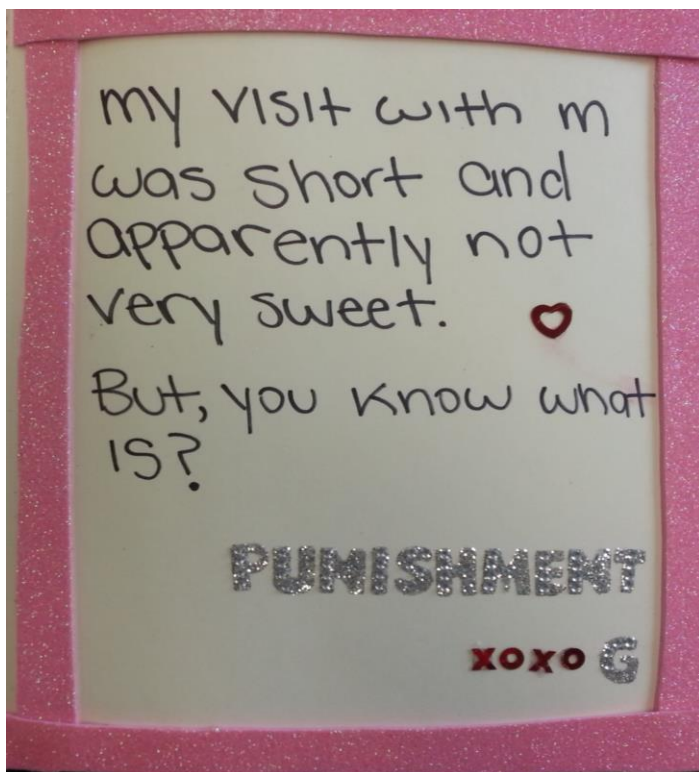 my visit with m
was short and
apparently not
very sweet.
But, you know what
is?
PUNISHMENT
xoxo G